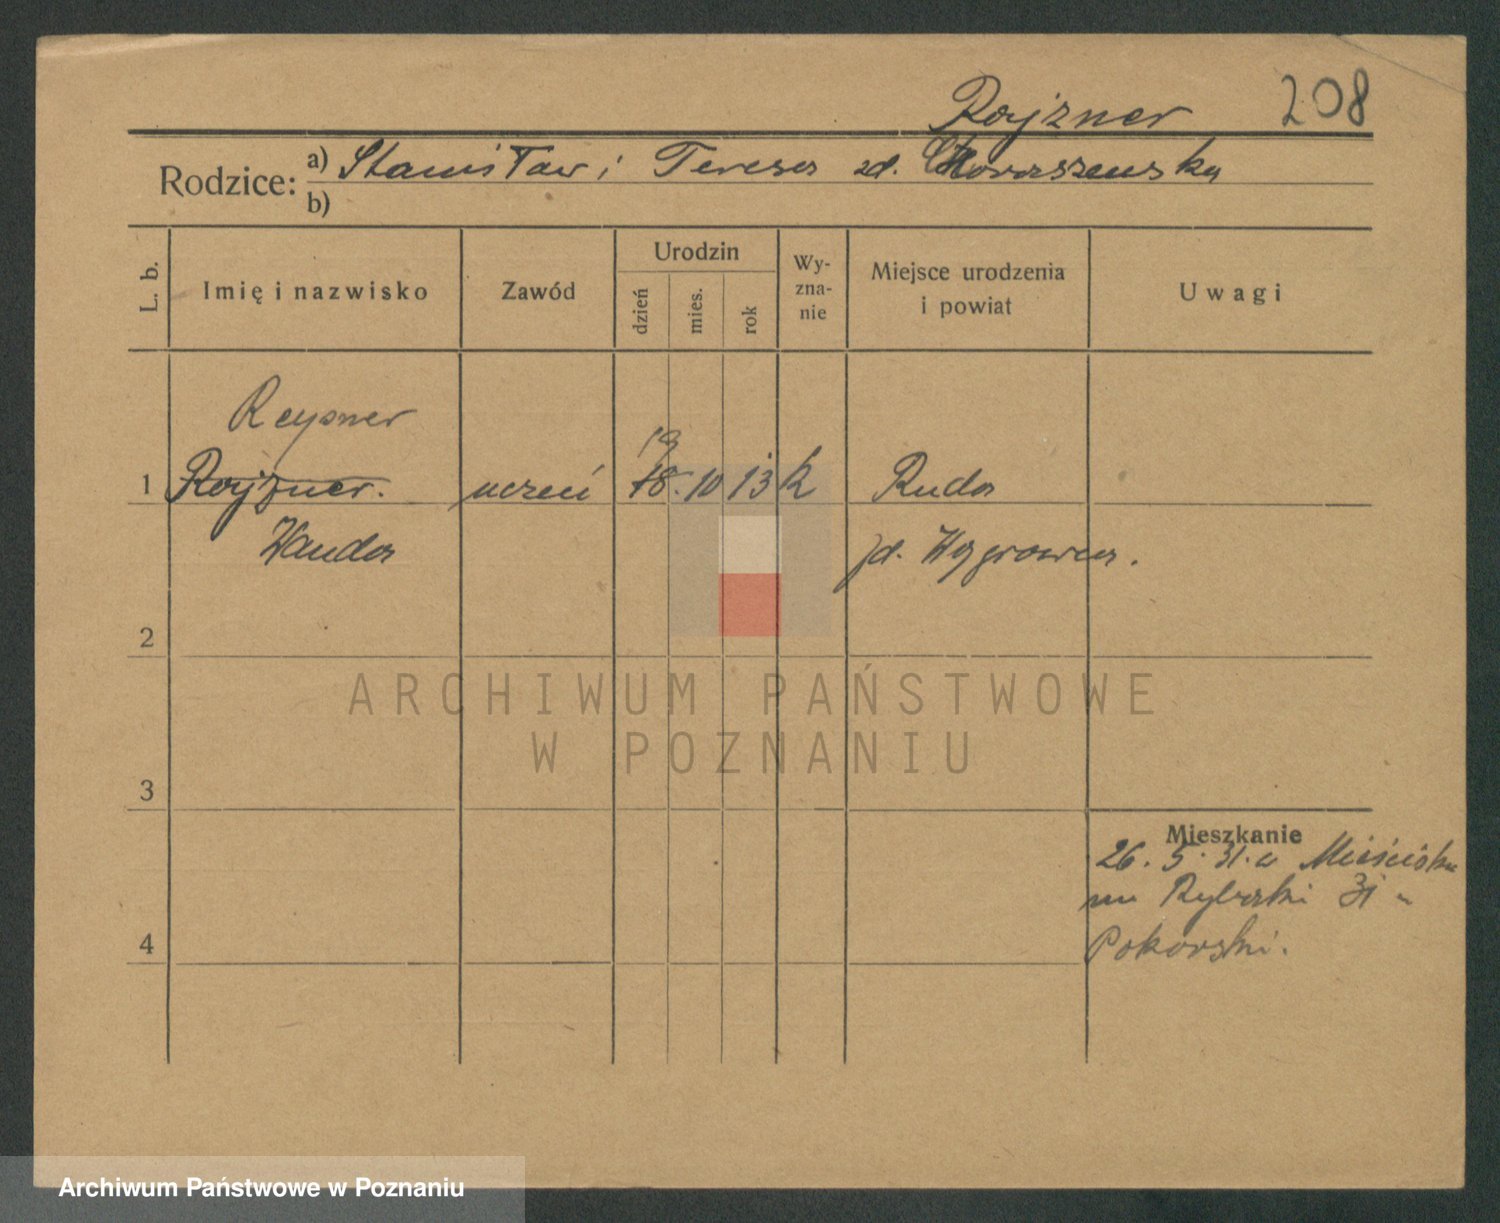 Rojzner 208
Rodzice: a) Stanisław i Teresa zd.
b)
L. b. Imię i nazwisko Zawód Urodzin dzień mies. rok Wy-
zna-
nie Miejsce urodzenia
i powiat Uwagi
Reysner
19
1 Rojzner. uczeń 18. 10 13 k Ruda
Wanda pd. Wągrowca.
2
ARCHIWUM PAŃSTWOWE
W POZNANIU
3
Mieszkanie
26. 5. 31. z Mieściska
Rybaki 31
Pokorski.
4
Archiwum Państwowe w Poznaniu